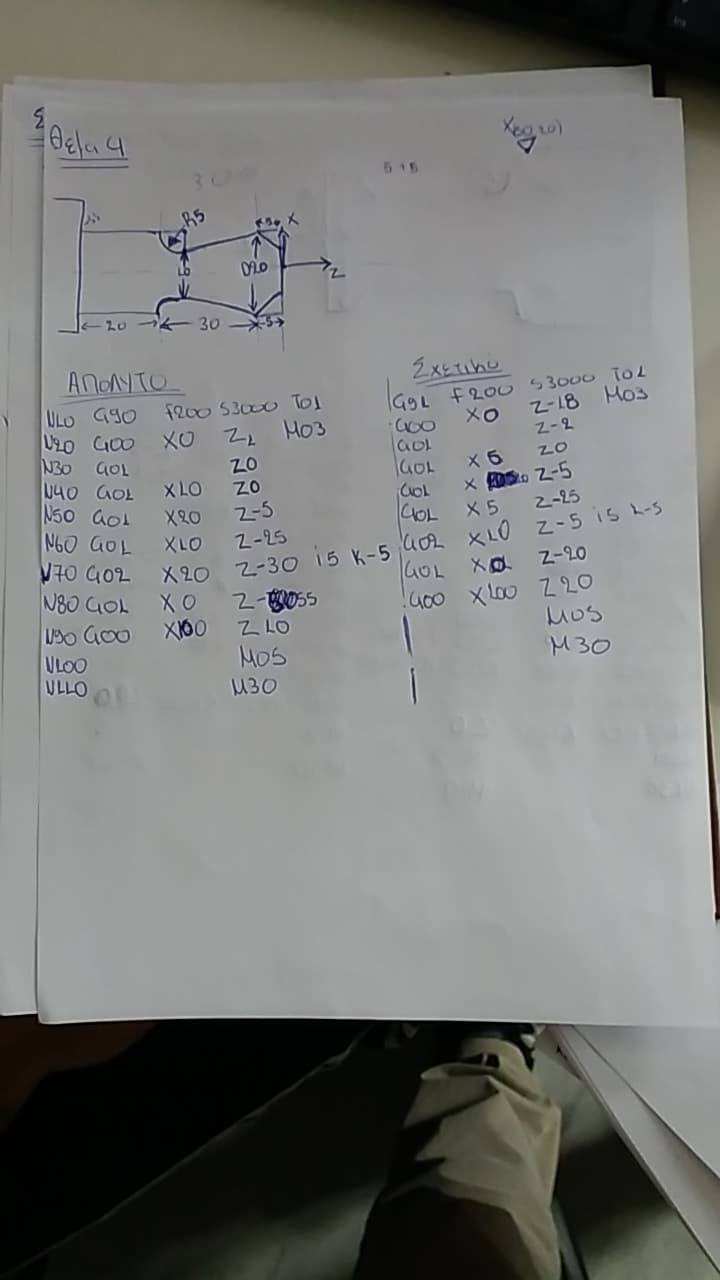 Θέμα 4
X(80,20)
5+5
R5
5 X
10 D20 Z
20 30 5
ΑΠΟΛΥΤΟ
N10 G90 F200 S3000 T01
N20 G00 X0 Z1 M03
N30 G01 Z0
N40 G01 X10 Z0
N50 G01 X20 Z-5
N60 G01 X10 Z-25
N70 G02 X20 Z-30 i5 K-5
N80 G01 X0 Z-55
N90 G00 X100 Z10
N100 M05
N110 M30
Σχετικό
G91 F200 S3000 T01
G00 X0 Z-18 M03
G01 Z-2
G01 X5 Z0
G01 X Z-5
G01 X5 Z-25
G02 X10 Z-5 i5 K-5
G01 X0 Z-20
G00 X100 Z20
M05
M30